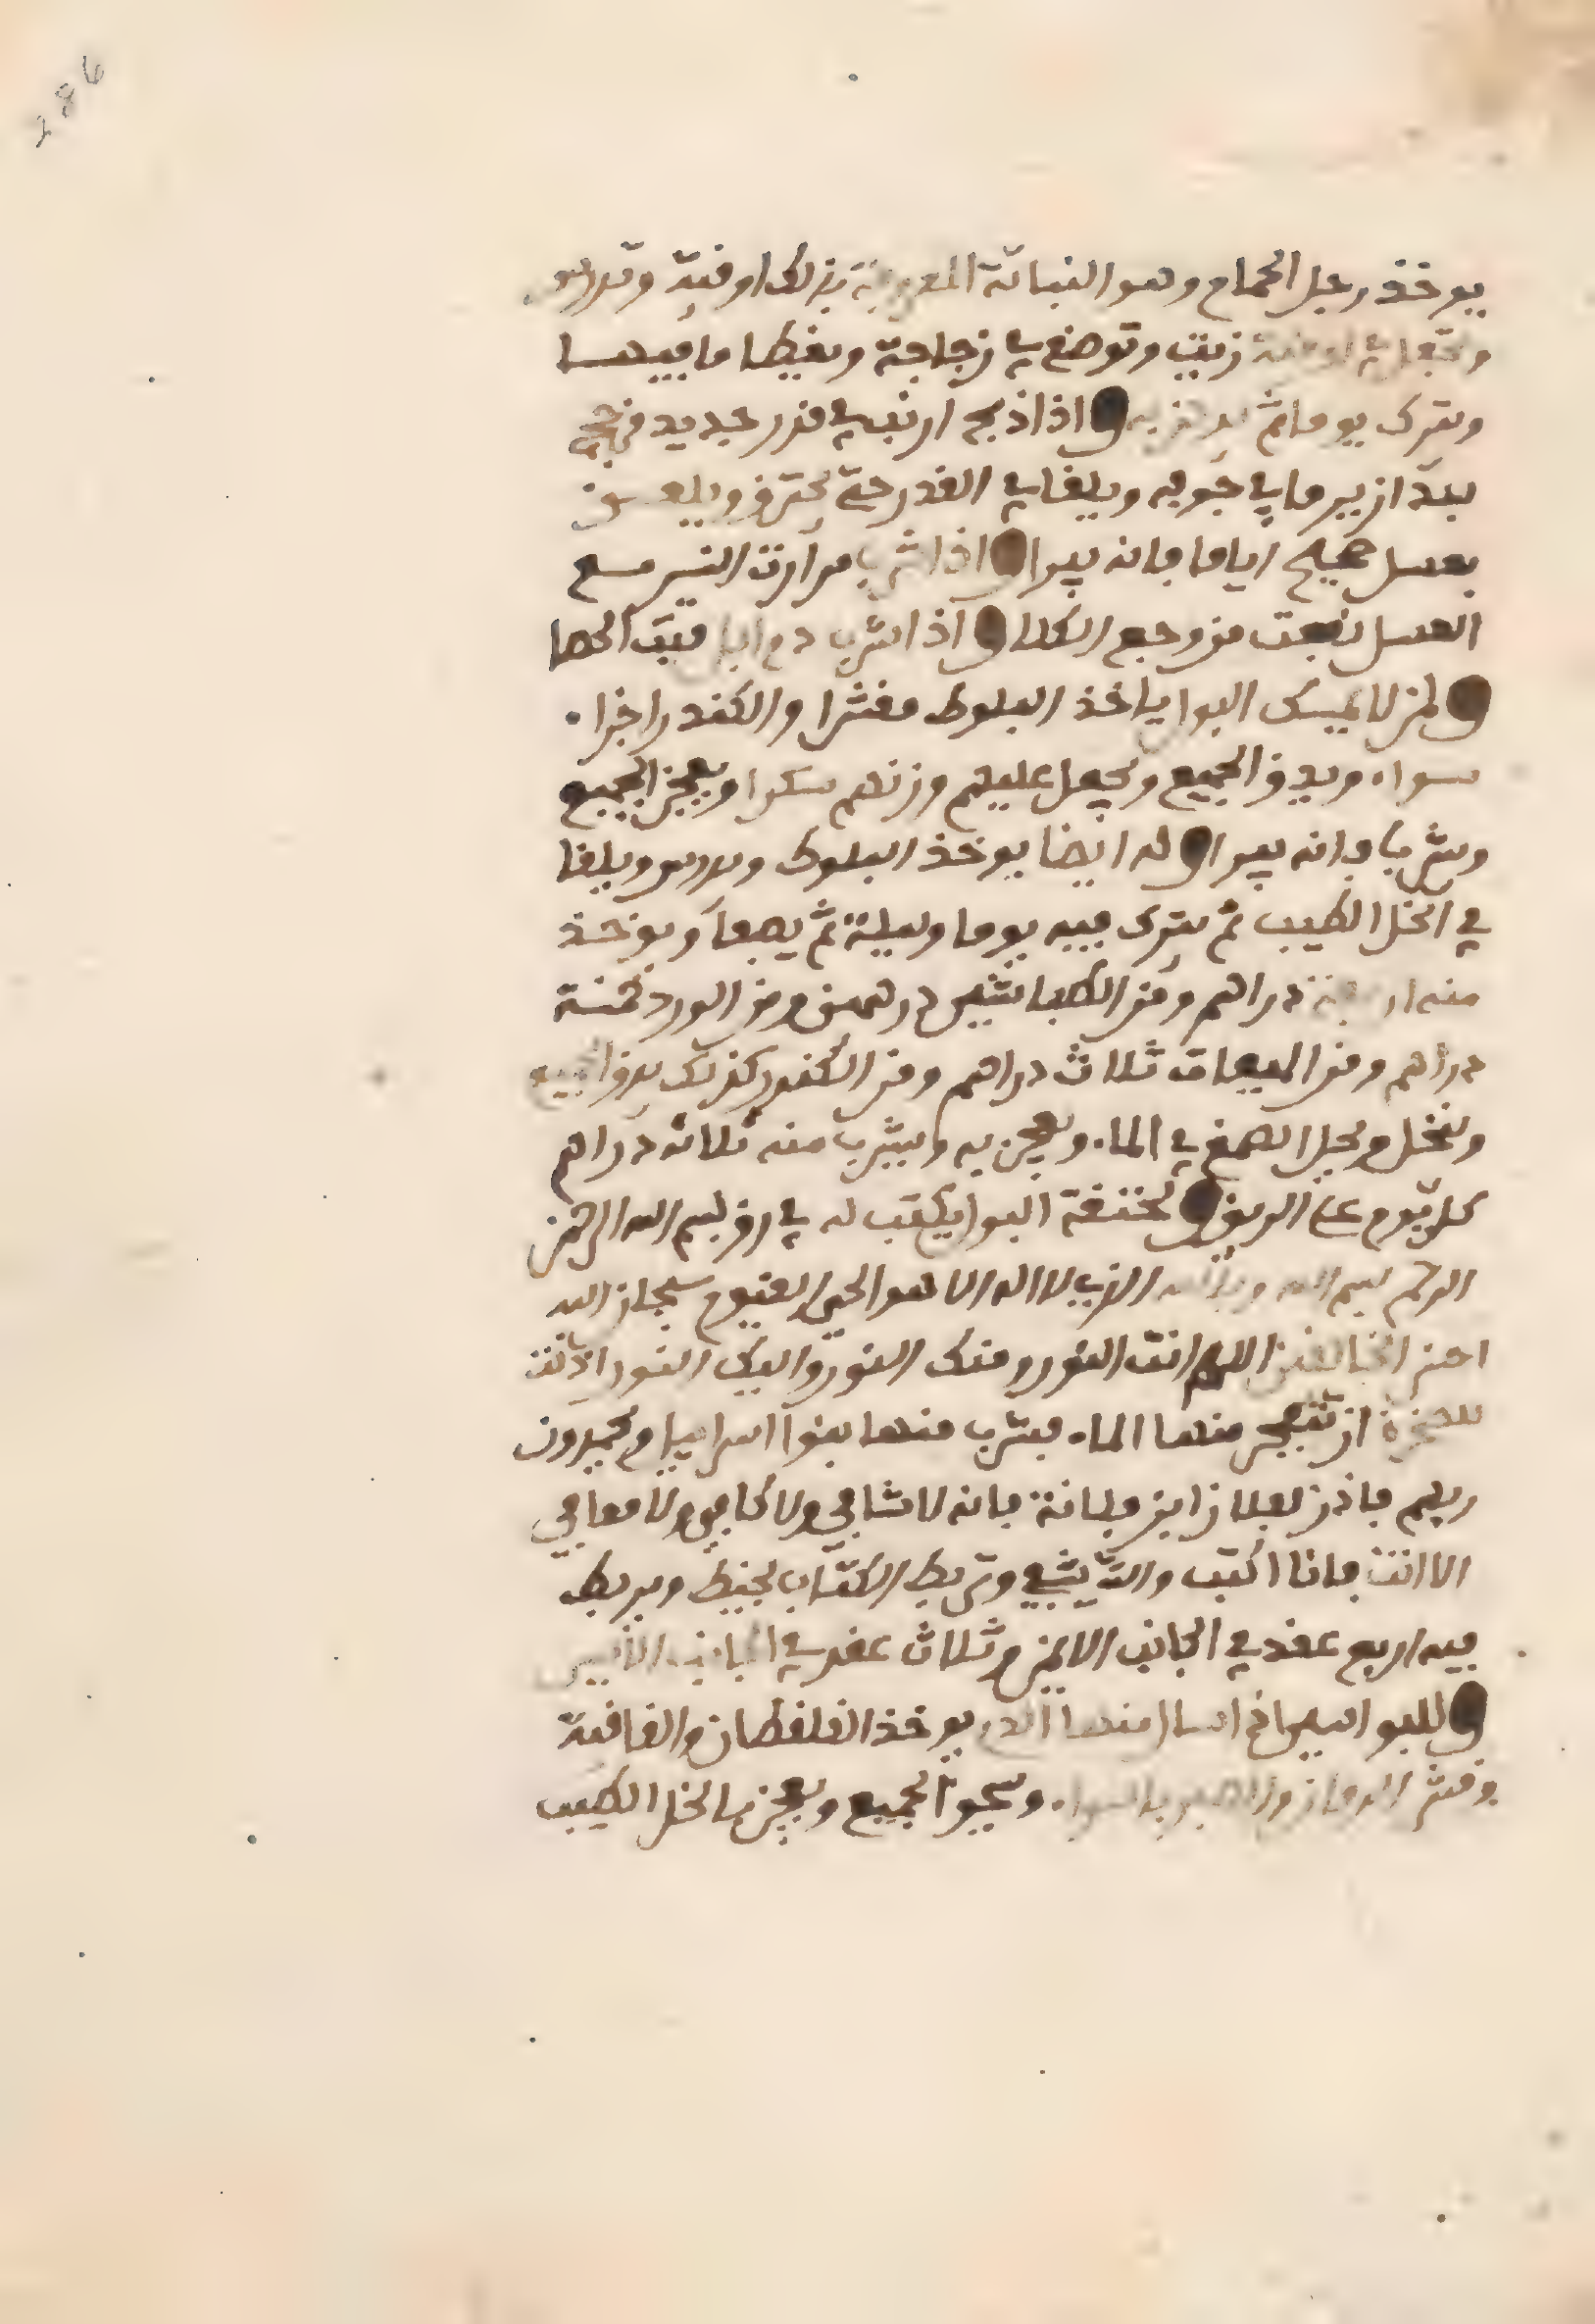 286
يوخذ رجل الحمام وهو النباتة المعروفة بذلك اوقية وتدرس
وتجعل في اوقية زيت وتوضع في زجاجة ويغطا ما فيها
ويترك يوما ثم يدهن به واذا ذبح ارنب في قدر جديد من غير
بعد ان يرما ما في جوفه ويلقا في القدر حتى يحترق ويلعق
بعسل صحيح اياما فانه يبرا واذا شرب مرارت النسر مع
العسل نفعت من وجع الكلا واذا شرب دم فتت الحصا
ولمن لا يمسك البول ياخذ البلوط مقشرا والكندر اجزا
سواء ويدق الجميع ويجعل عليهم وزنهم سكرا ويعجن الجميع
ويشرب فانه يبرا وله ايضا يوخذ البلوط ويدرس ويلقا
في الخل الطيب ثم يترك فيه يوما وليلة ثم يصفا ويوخذ
منه اربعة دراهم ومن الطباشير درهمين ومن الورد خمسة
دراهم ومن ثلاث دراهم ومن الكندر كذلك يدق الجميع
وينخل ويحل الصمغ في الماء ويعجن به ويشرب منه ثلاثة دراهم
كل يوم على الريق ولخنقة البول يكتب له في رق بسم الله الرحمن
الرحيم بسم الله وبالله الذي لا اله الا هو الحي القيوم سبحان الله
احسن الخالقين اللهم انت النور ومنك النور واليك النور اذنت
للصخرة ان تنفجر منها الماء فيشرب منها بنوا اسراييل ويحمدون
ربهم فاذن لفلان ابن فلانة فانه لا شافي ولا كافي ولا معافي
الا انت فانا اكتب والله يشفي وتربط الكتاب بخيط ويربط
فيه اربع عقد في الجانب الايمن وثلاث عقد في الجانب الايسر
وللبواسير اذا سال منها الدم يوخذ القلقطان والقاقية
وقشر الرمان والصبر بالسواء ويسحق الجميع ويعجن بالخل الطيب